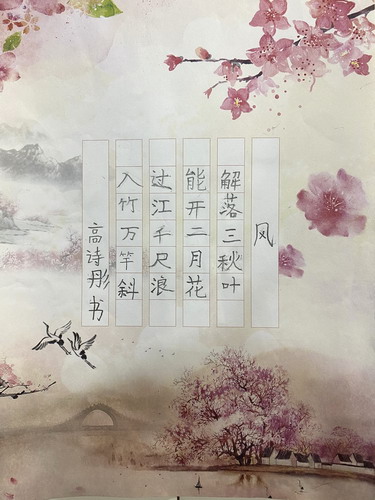 风
解落三秋叶
能开二月花
过江千尺浪
入竹万竿斜
高诗彤书